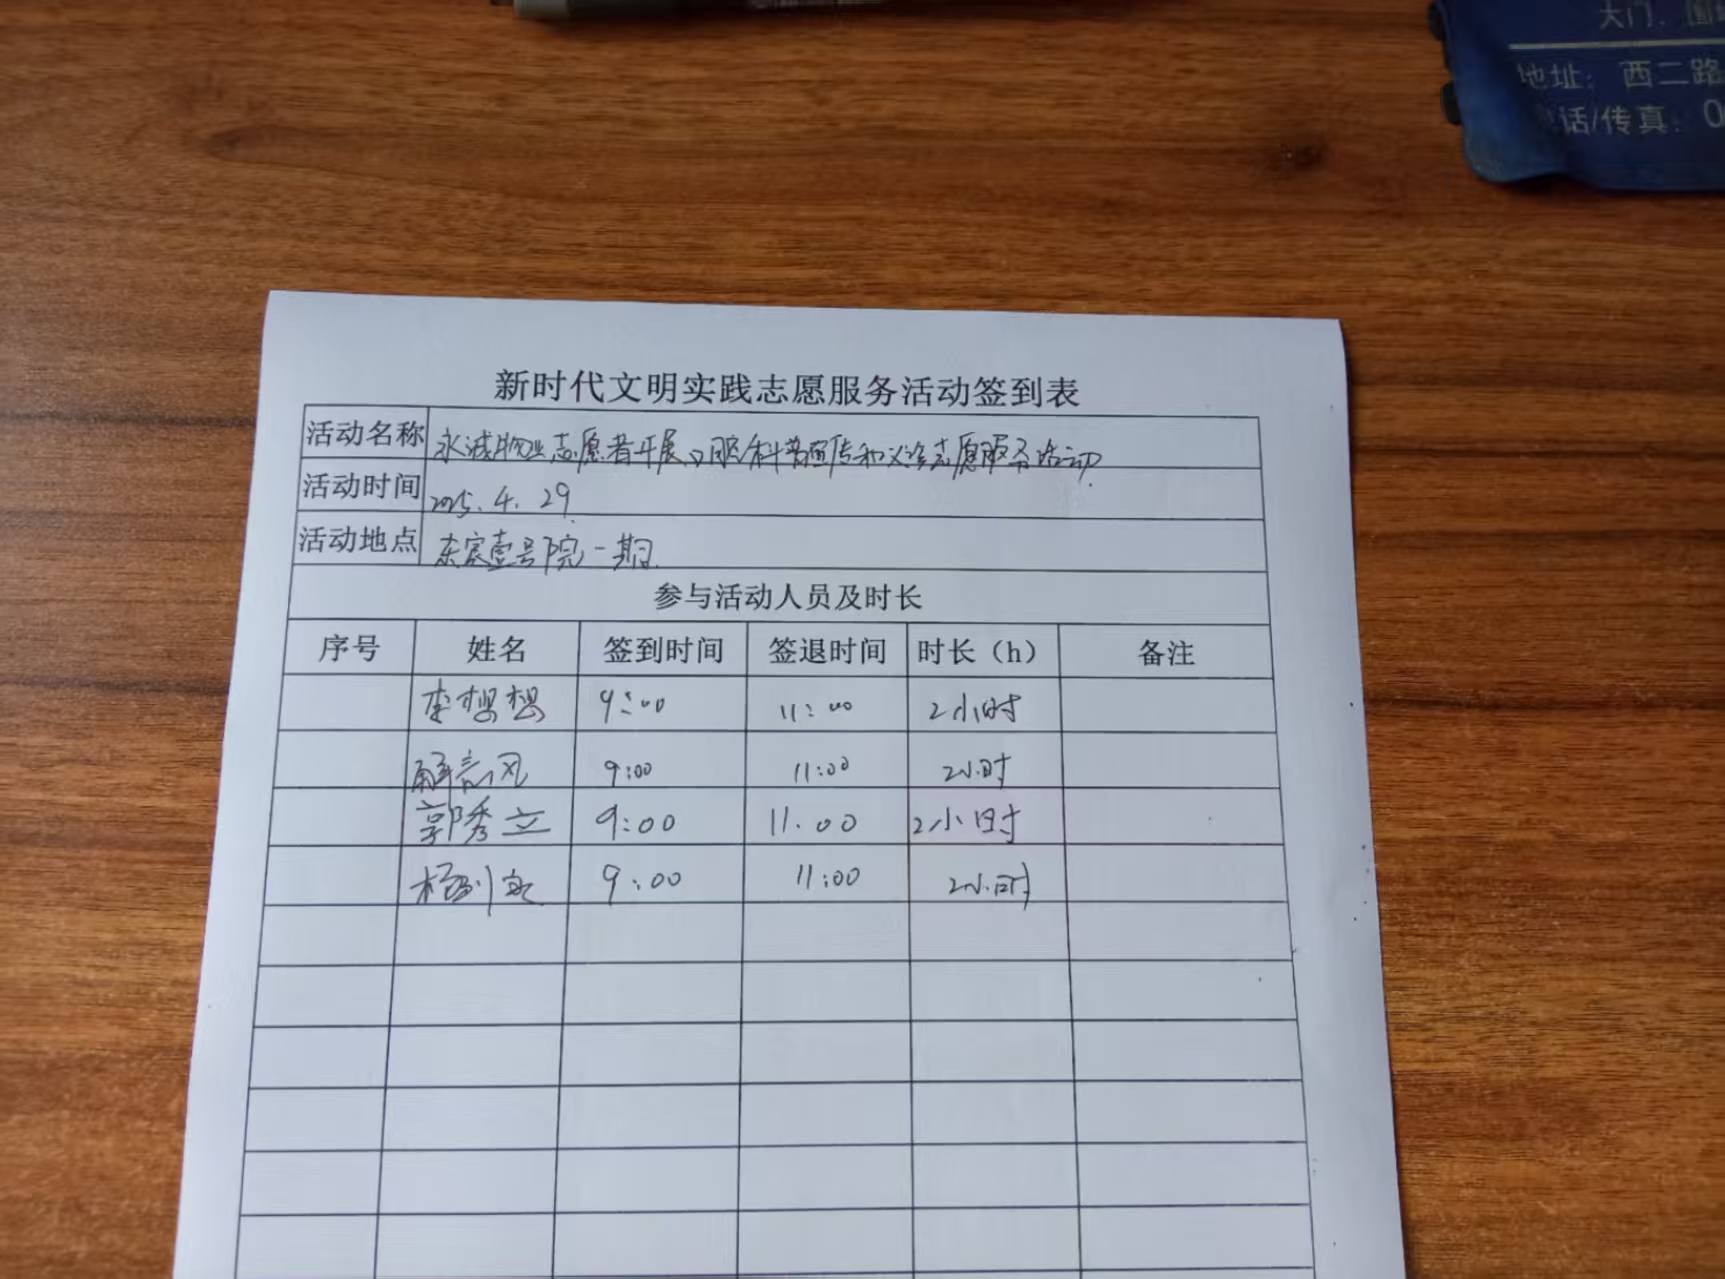 大门：
地址：西二路
话/传真：0
新时代文明实践志愿服务活动签到表
活动名称 永诚物业志愿者开展口腔科普宣传和义诊志愿服务活动
活动时间 2025.4.29
活动地点 东宸壹号院一期
参与活动人员及时长
序号 姓名 签到时间 签退时间 时长（h） 备注
李想想 9:00 11:00 2小时
解志风 9:00 11:00 2小时
郭秀立 9:00 11.00 2小时
9:00 11:00 2小时